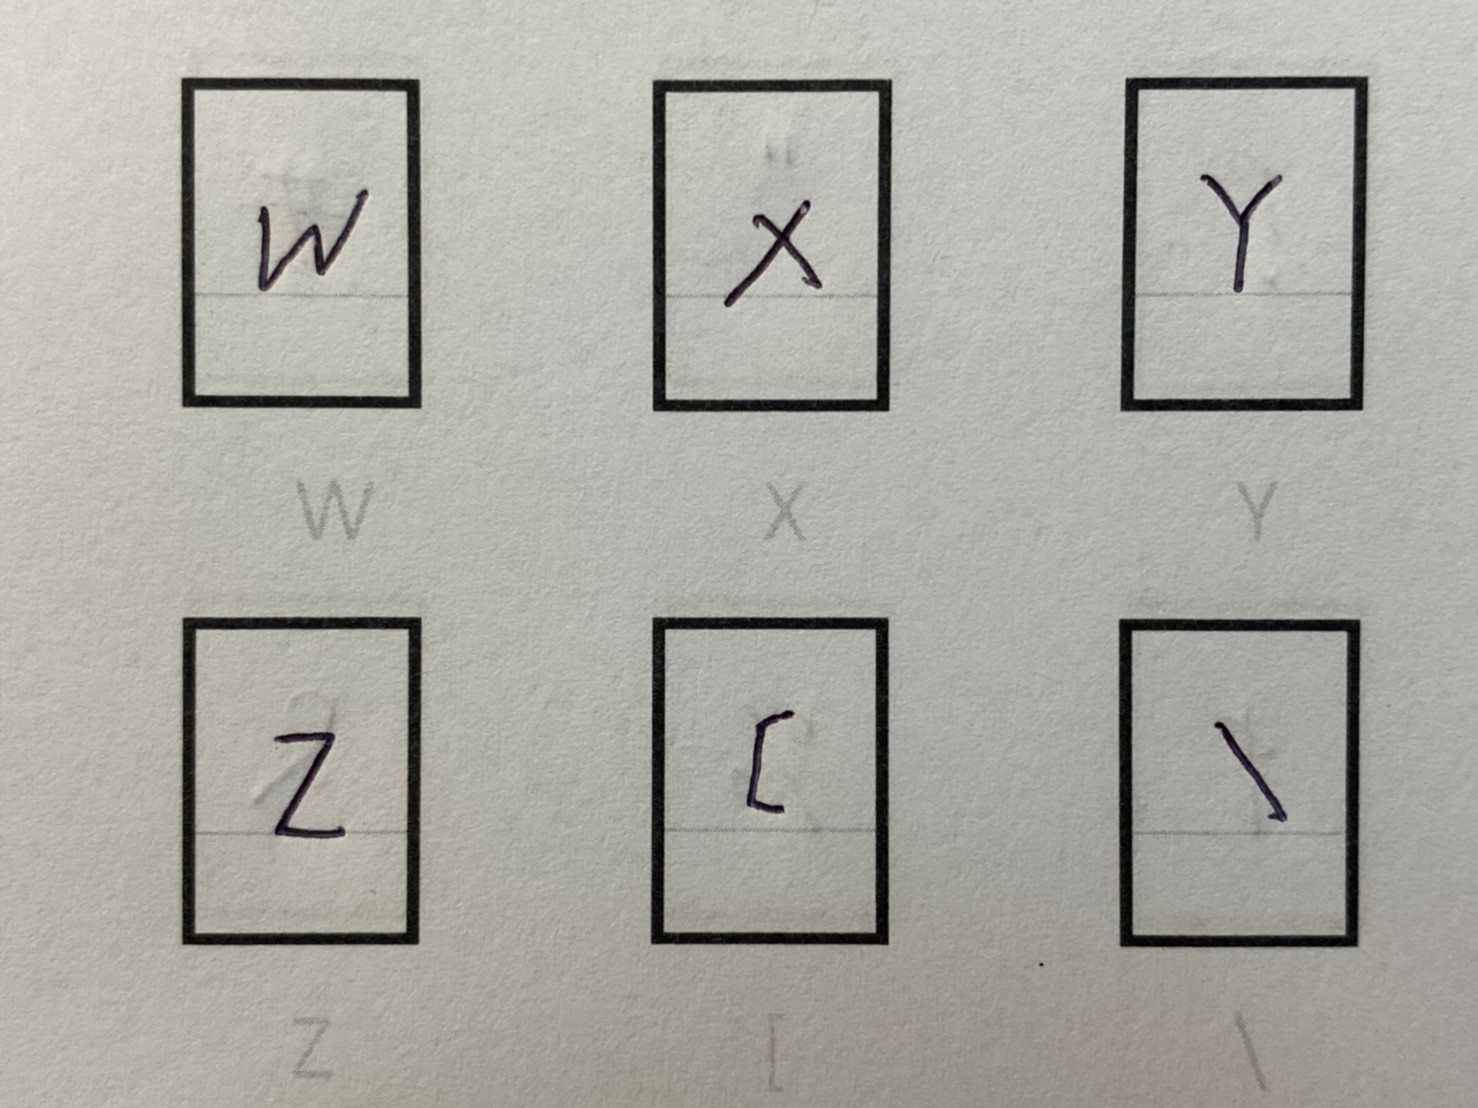 W X Y
W X Y
Z [ \
Z [ \